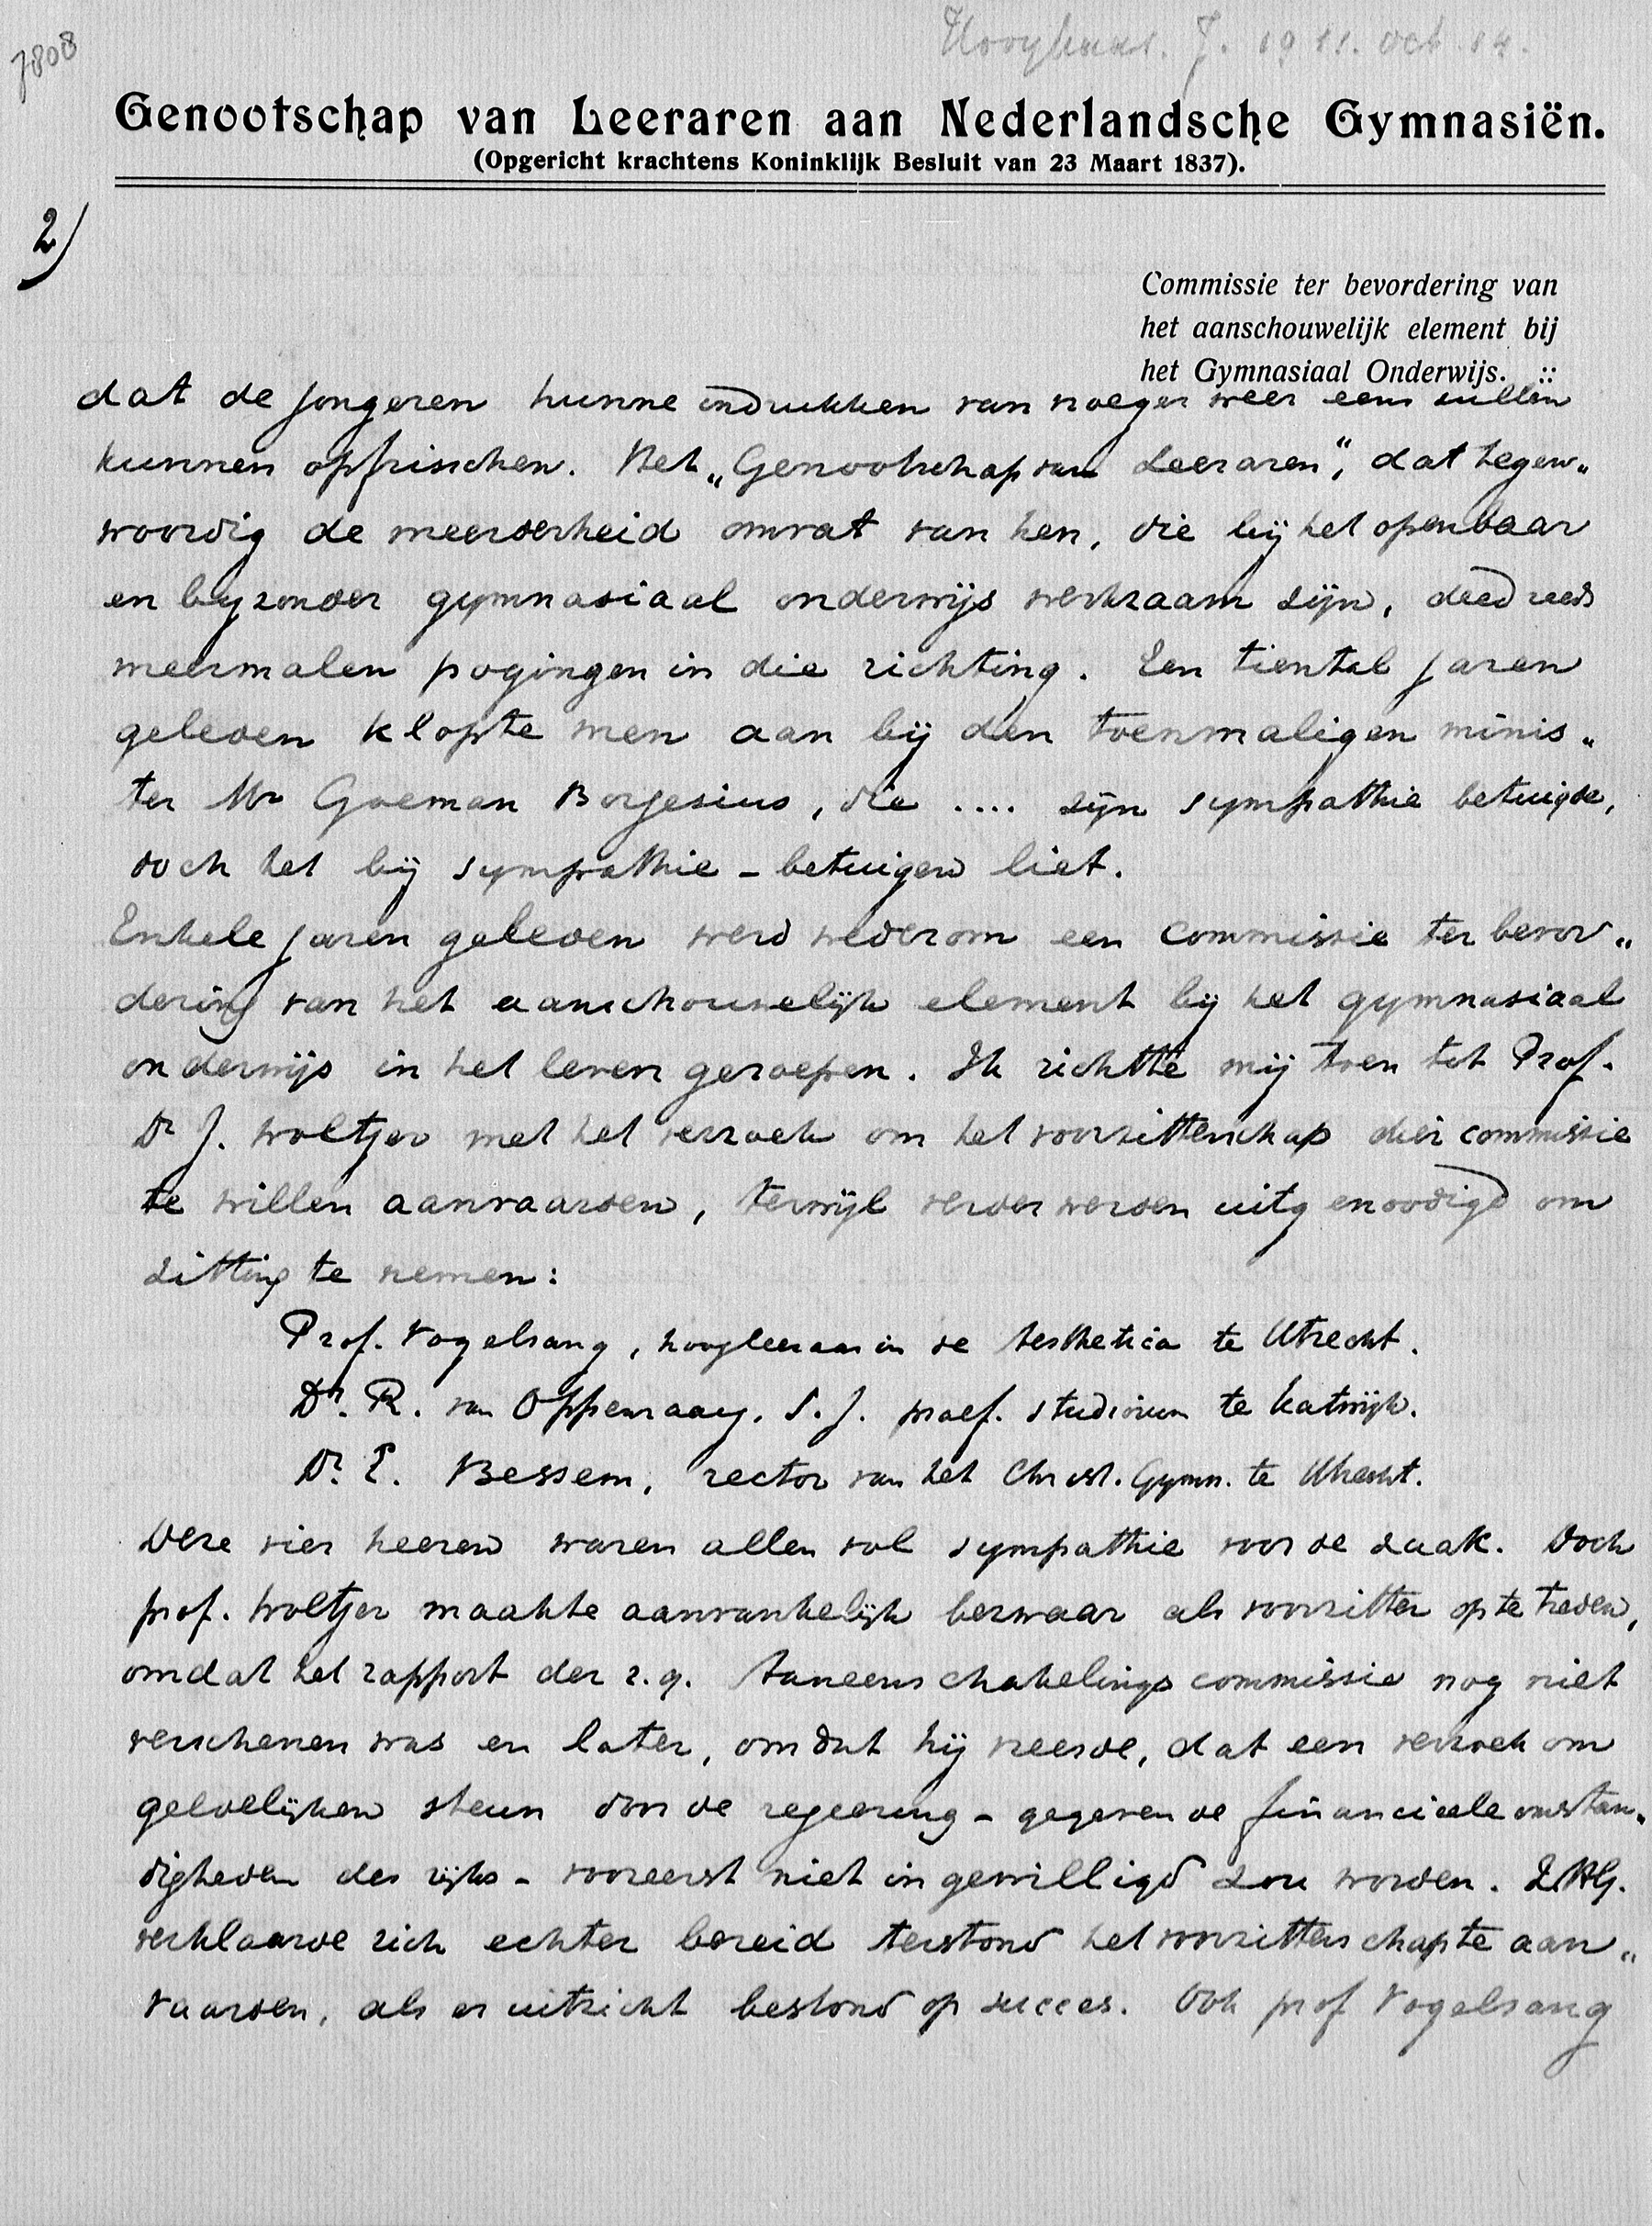 7808
Hooykaas. J. 1911. Oct. 14.
Genootschap van Leeraren aan Nederlandsche Gymnasiën.
(Opgericht krachtens Koninklijk Besluit van 23 Maart 1837).
2)
Commissie ter bevordering van
het aanschouwelijk element bij
het Gymnasiaal Onderwijs. ::
dat de jongeren hunne indrukken van vroeger weer eens zullen
kunnen opfrisschen. Het „Genootschap van Leeraren", dat tegen„
woordig de meerderheid omvat van hen, die bij het openbaar
en byzonder gymnasiaal onderwijs werkzaam zijn, deed reeds
meermalen pogingen in die richting. Een tiental jaren
geleden klopte men aan bij den toenmaligen minis„
ter Mr Goeman Borgesius, die .... zijn sympathie betuigde,
doch het bij sympathie-betuigen liet.
Enkele jaren geleden werd wederom een commissie ter bevor„
dering van het aanschouwelijk element bij het gymnasiaal
onderwijs in het leven geroepen. Ik richtte mij toen tot Prof.
Dr J. Woltjer met het verzoek om het voorzitterschap dier commissie
te willen aanvaarden, terwijl verder werden uitgenoodigd om
zitting te nemen:
Prof. Vogelsang, hoogleeraar in de Aesthetica te Utrecht.
Dr. R. van Oppenraay. S. J. praef. studiorum te Katwijk.
Dr. E. Bessem, rector van het Christ. Gymn. te Utrecht.
Deze vier heeren waren allen vol sympathie voor de zaak. Doch
prof. Woltjer maakte aanvankelijk bezwaar als voorzitter op te treden,
omdat het rapport der z.g. Aaneenschakelings commissie nog niet
verschenen was en later, omdat hij vreesde, dat een verzoek om
geldelijken steun door de regeering - gegeven de financieele omstan„
digheden des rijks - vooreerst niet ingewilligd zou worden. Z.H.G.
verklaarde zich echter bereid terstond het voorzitterschap te aan„
vaarden, als er uitzicht bestond op succes. Ook prof Vogelsang